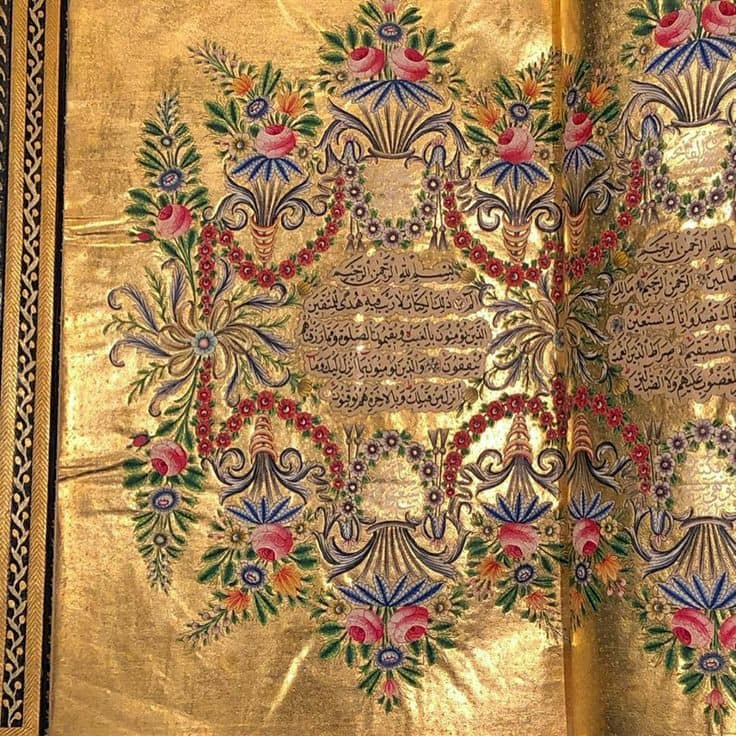 بسم الله الرحمن الرحيم
الرحمن الرحيم مالك
واياك نستعين
المستقيم صراط الذين انعمت
عليهم ولا الضالين
بسم الله الرحمن الرحيم
الم ذلك الكتاب لا ريب فيه هدى للمتقين
الذين يؤمنون بالغيب ويقيمون الصلوة ومما رزقناهم
ينفقون والذين يؤمنون بما انزل اليك وما
انزل من قبلك وبالاخرة هم يوقنون